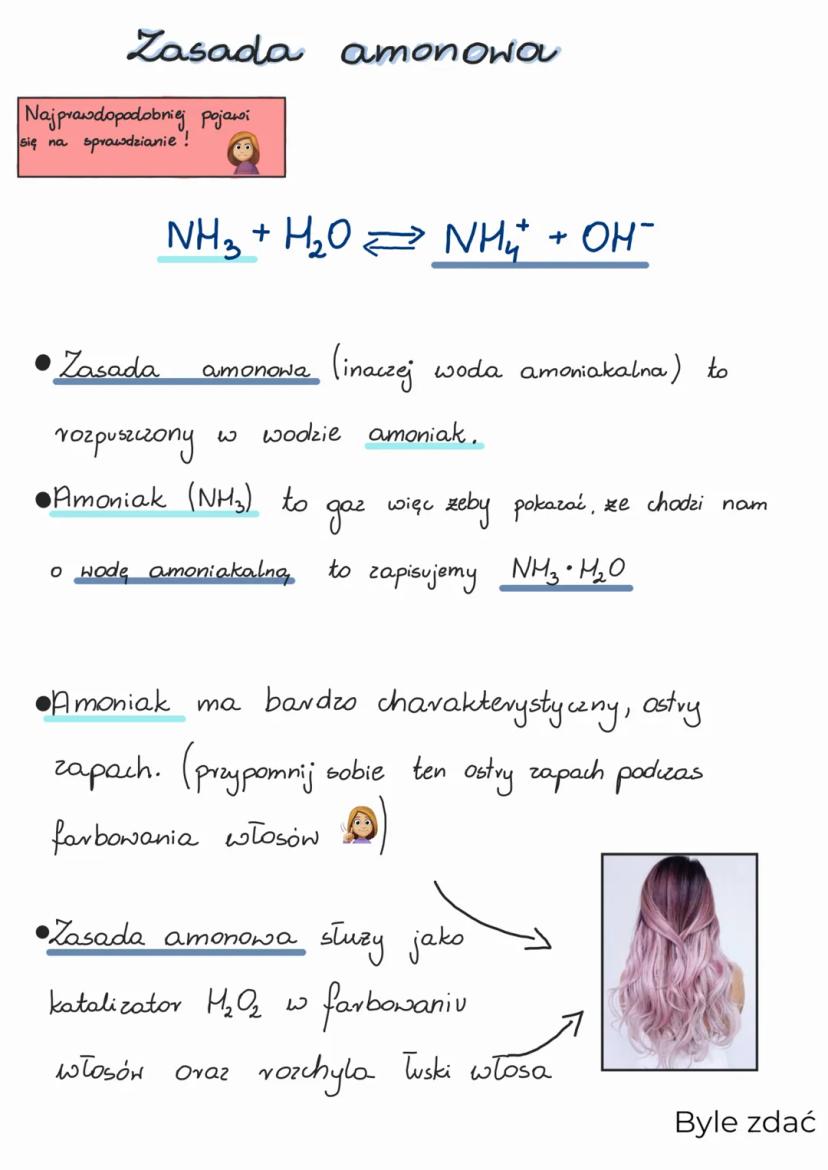 Zasada amonowa
Najprawdopodobniej pojawi
się na sprawdzianie!
NH₃ + H₂O ⇌ NH₄⁺ + OH⁻
• Zasada amonowa (inaczej woda amoniakalna) to
rozpuszczony w wodzie amoniak.
• Amoniak (NH₃) to gaz więc żeby pokazać, że chodzi nam
o wodę amoniakalną to zapisujemy NH₃ · H₂O
• Amoniak ma bardzo charakterystyczny, ostry
zapach. (przypomnij sobie ten ostry zapach podczas
farbowania włosów )
• Zasada amonowa służy jako
katalizator H₂O₂ w farbowaniu
włosów oraz rozchyla łuski włosa
Byle zdać